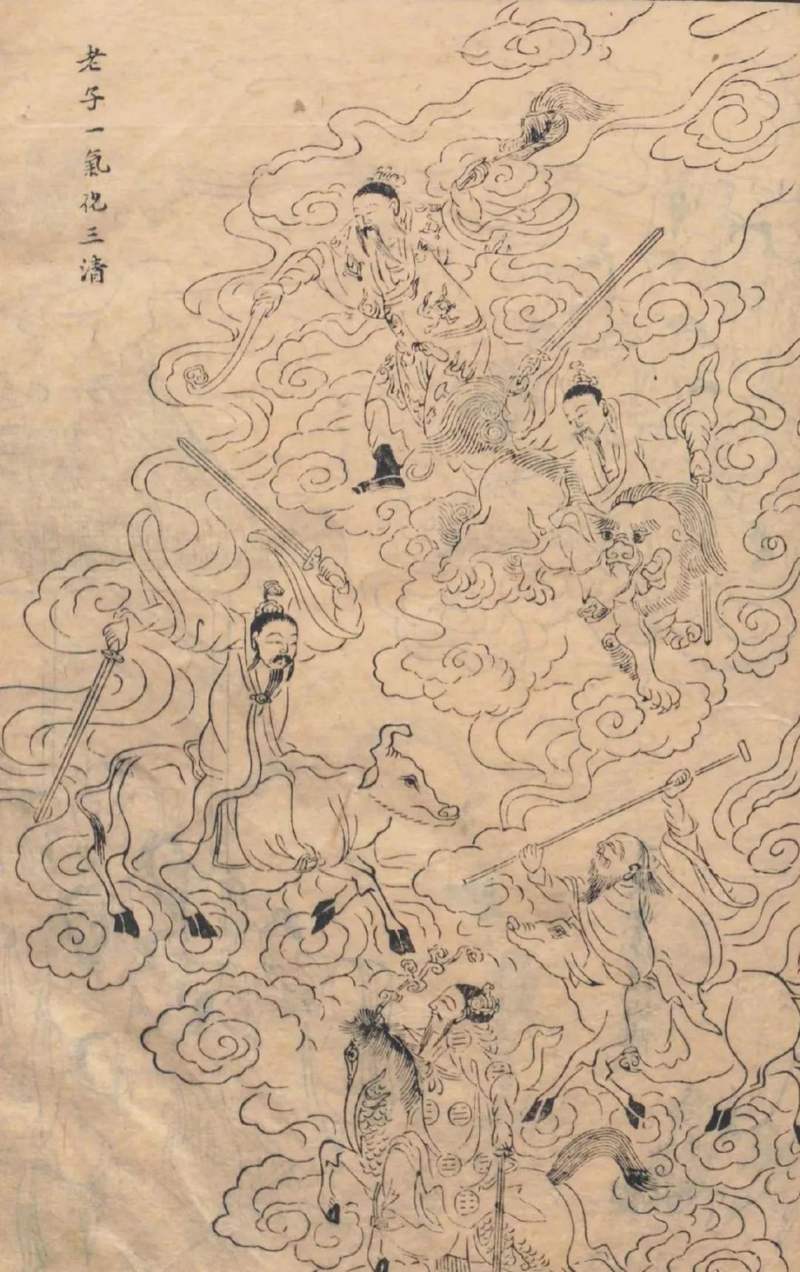 老子一氣化三清